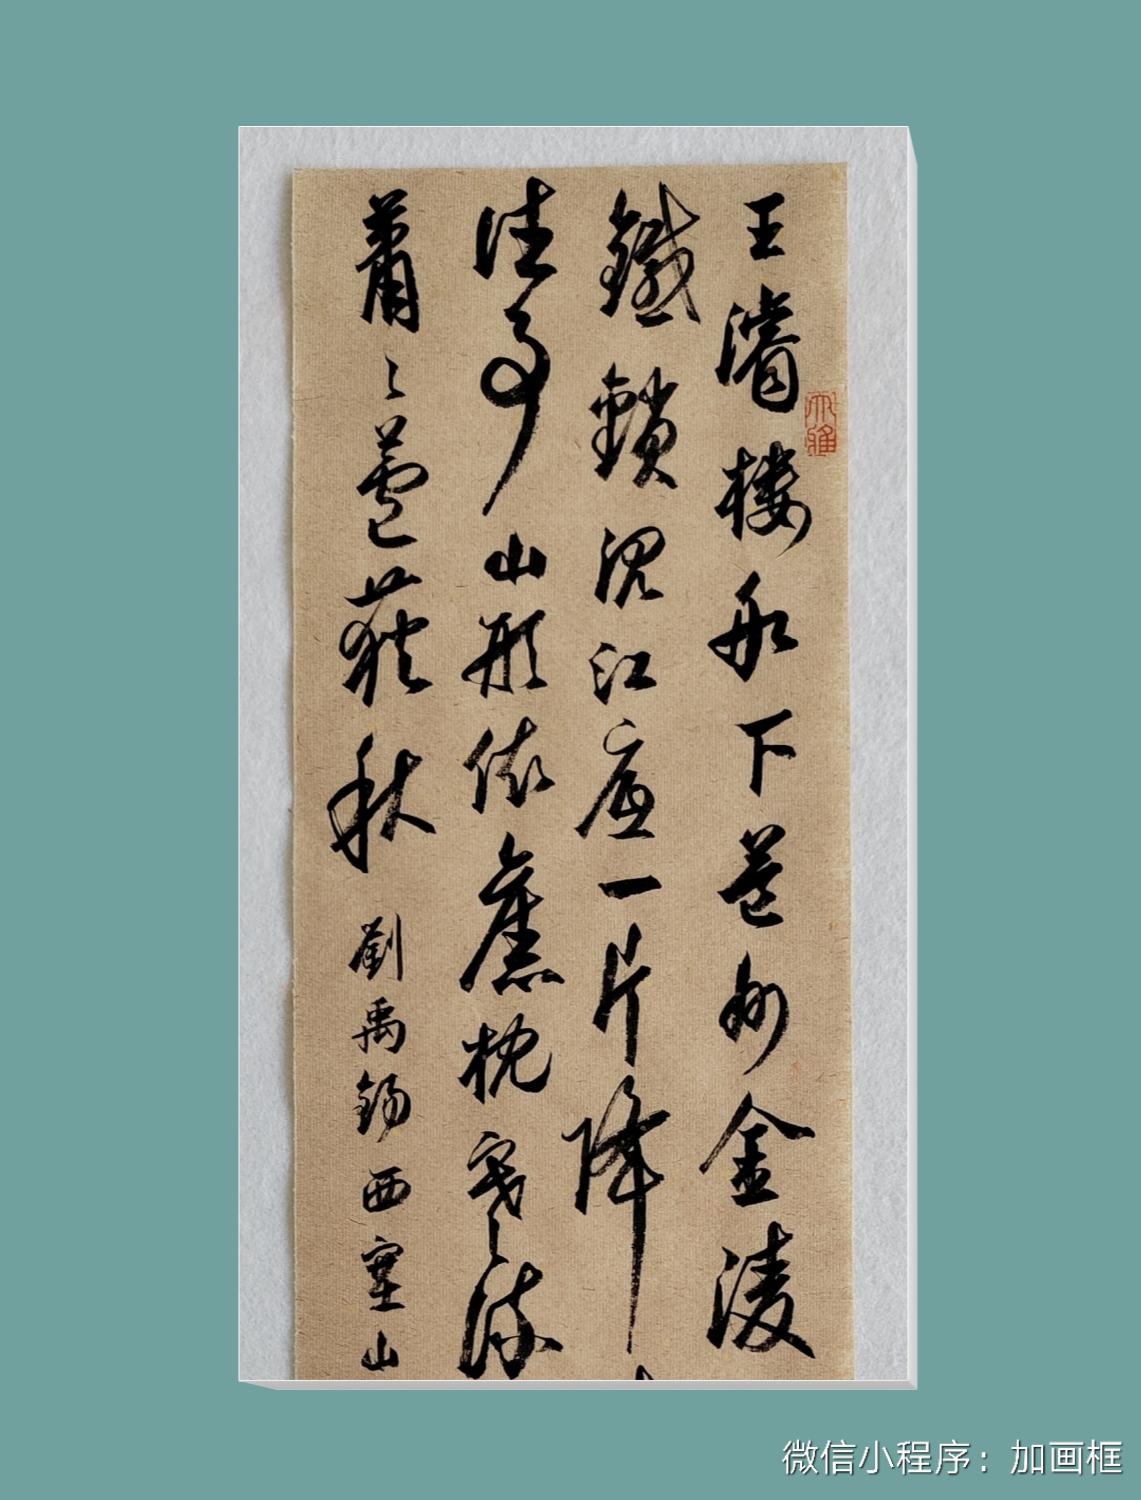 王濬楼船下益州金陵
鐵鎖沉江底一片降
往事山形依舊枕寒流
蕭〻蘆荻秋 劉禹錫西塞山
大雅
微信小程序：加画框